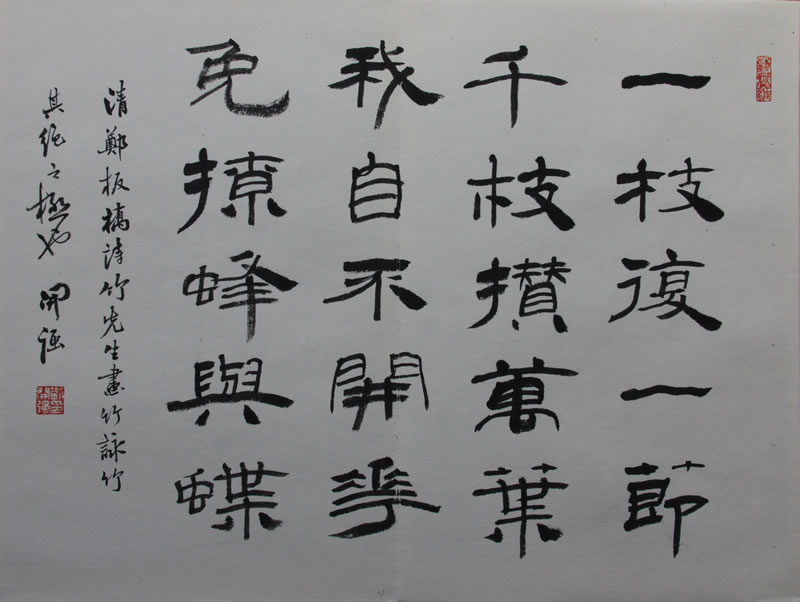 一枝復一節
千枝攢萬葉
我自不開花
免撩蜂與蝶
清鄭板橋詩竹先生畫竹詠竹
其絕之極也 開強